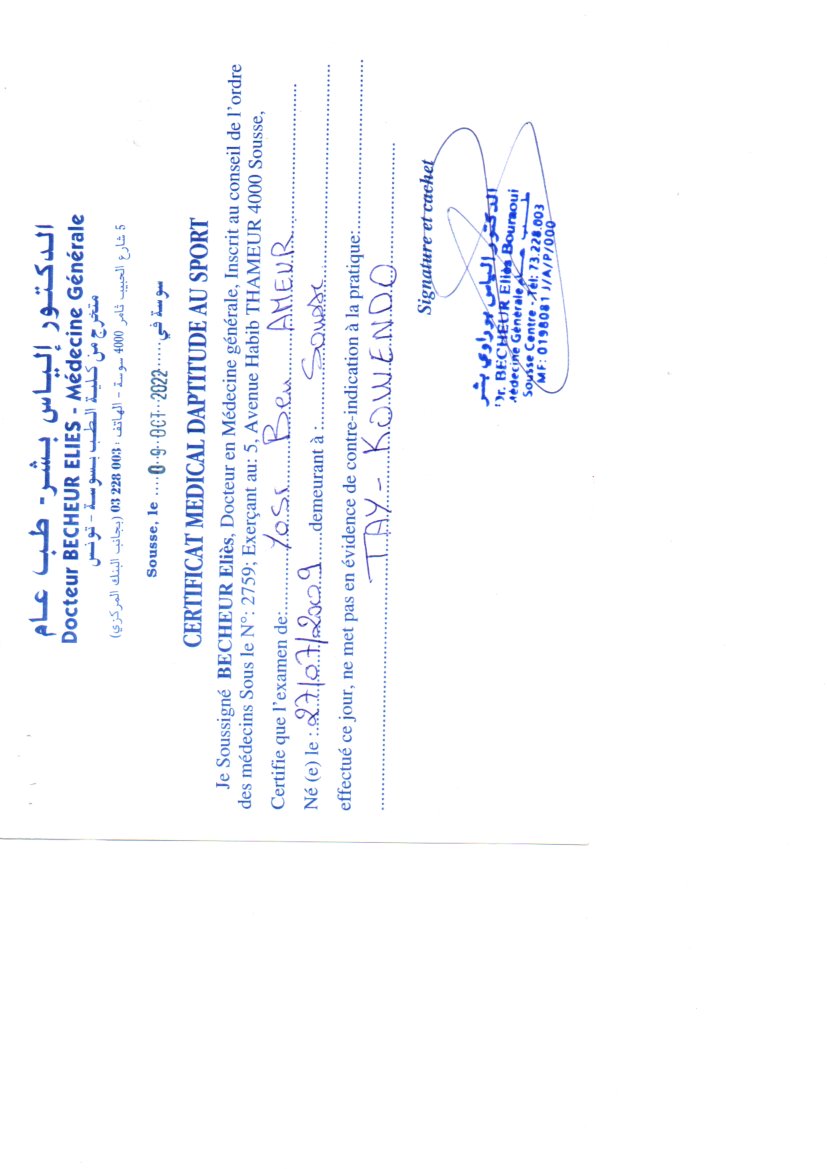 الدكتور إلياس بشر - طب عام
Docteur BECHEUR ELIES - Médecine Générale
متخرج من كلية الطب بسوسة - تونس
5 شارع الحبيب ثامر 4000 سوسة - الهاتف : 003 228 03 (بجانب البنك المركزي)
Sousse, le ....0 9 OCT 2022..... سوسة في
CERTIFICAT MEDICAL DAPTITUDE AU SPORT
Je Soussigné BECHEUR Eliès, Docteur en Médecine générale, Inscrit au conseil de l'ordre
des médecins Sous le N°: 2759; Exerçant au: 5, Avenue Habib THAMEUR 4000 Sousse,
Certifie que l'examen de: Yosr Ben AMEUR
Né (e) le : 27/07/2009 demeurant à : Sousse
effectué ce jour, ne met pas en évidence de contre-indication à la pratique:
TAY - KOWENDO
Signature et cachet
الدكتور إلياس بوراوي بشر
Dr. BECHEUR Eliès Bouraoui
Médecine Générale طب عام
Sousse Centre - Tél: 73.228.003
MF: 0198081 J/A/P/000